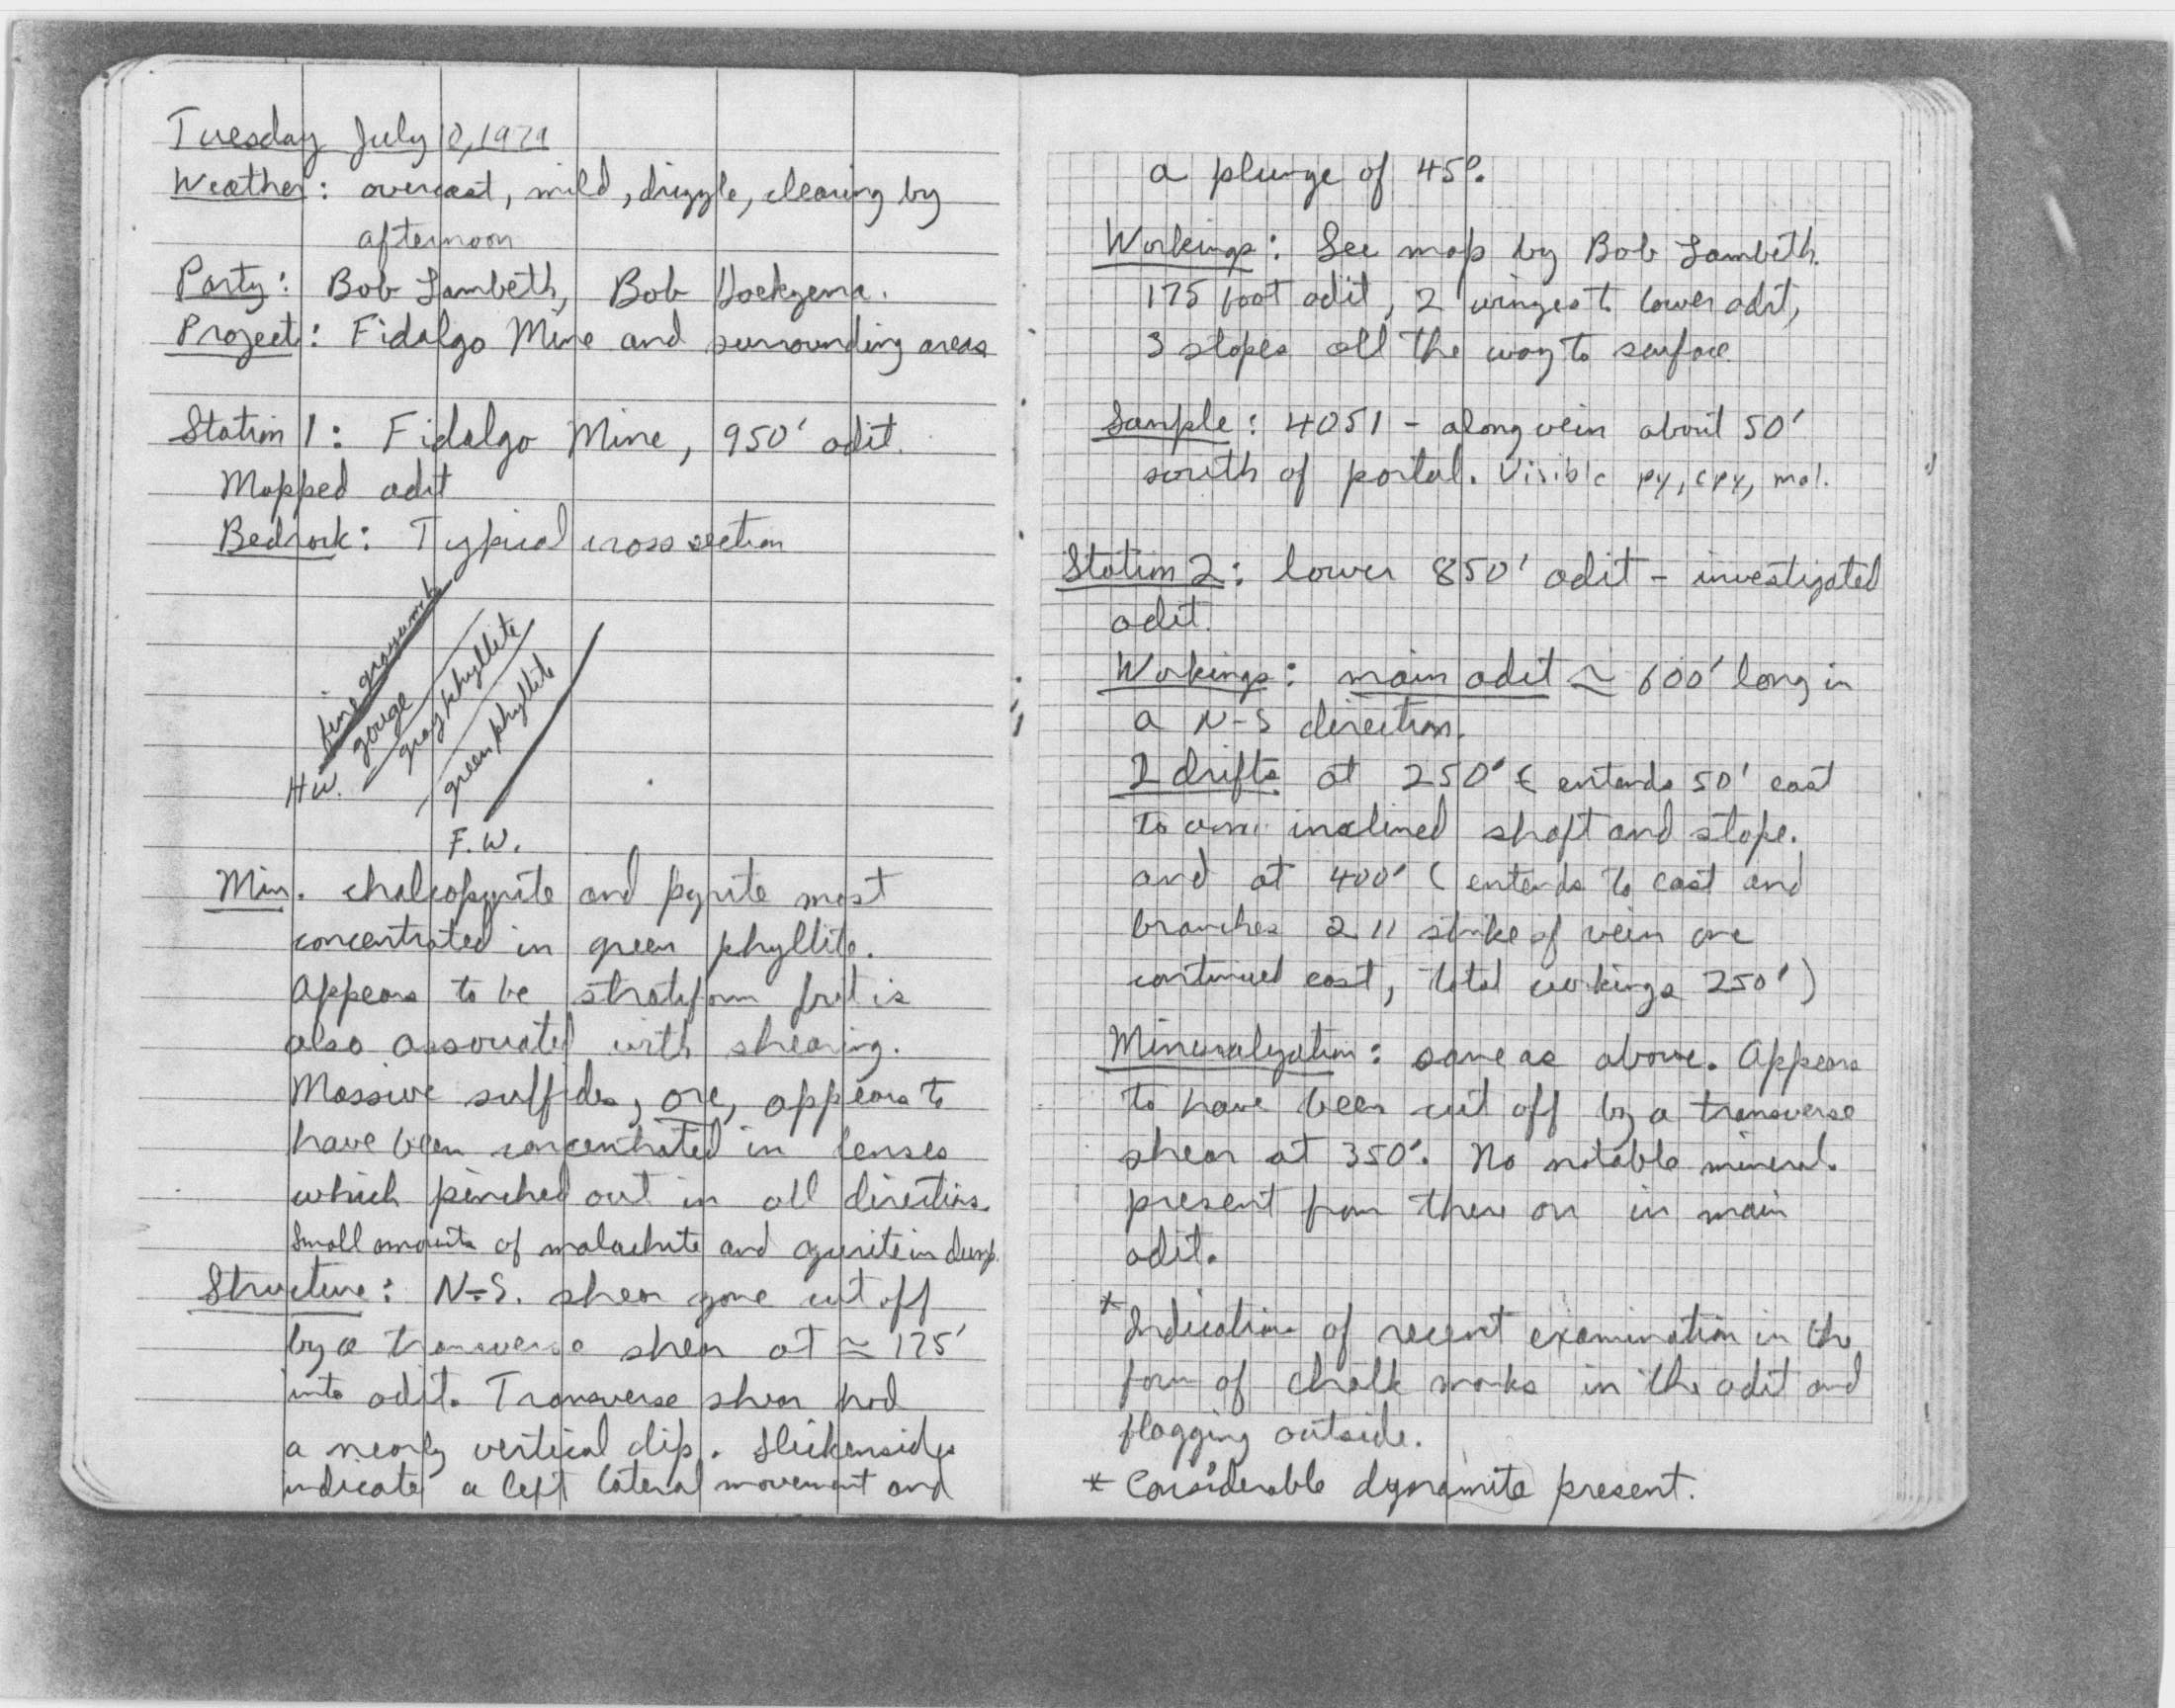 Tuesday July 10, 1979
Weather: overcast, mild, drizzle, clearing by
afternoon
Party: Bob Lambeth, Bob Hoekzema.
Project: Fidalgo Mine and surrounding areas
Station 1: Fidalgo Mine, 950' adit.
Mapped adit
Bedrock: Typical cross section
fine graywacke
gouge
gray phyllite
green phyllite
H.W.
F.W.
Min. chalcopyrite and pyrite most
concentrated in green phyllite.
Appears to be stratiform but is
also associated with shearing.
Massive sulfides, ore, appears to
have been concentrated in lenses
which pinched out in all directions.
Small amounts of malachite and azurite in dump.
Structure: N-S. shear zone cut off
by a transverse shear at ≃ 175'
into adit. Transverse shear had
a nearly vertical dip. Slickensides
indicate a left lateral movement and
a plunge of 45°.
Workings: See map by Bob Lambeth.
175 foot adit, 2 winzes to lower adit,
3 stopes all the way to surface
Sample: 4051 - along vein about 50'
south of portal. Visible py, cpy, mal.
Station 2: lower 850' adit - investigated
adit.
Workings: main adit ≃ 600' long in
a N-S direction.
2 drifts at 250' ( extends 50' east
to inclined shaft and stope.
and at 400' ( extends to east and
branches 2 11 strike of vein one
continued east, total workings 250')
Mineralization: same as above. Appears
to have been cut off by a transverse
shear at 350'. No notable mineral.
present from there on in main
adit.
* Indications of recent examination in the
form of chalk marks in the adit and
flagging outside.
* Considerable dynamite present.